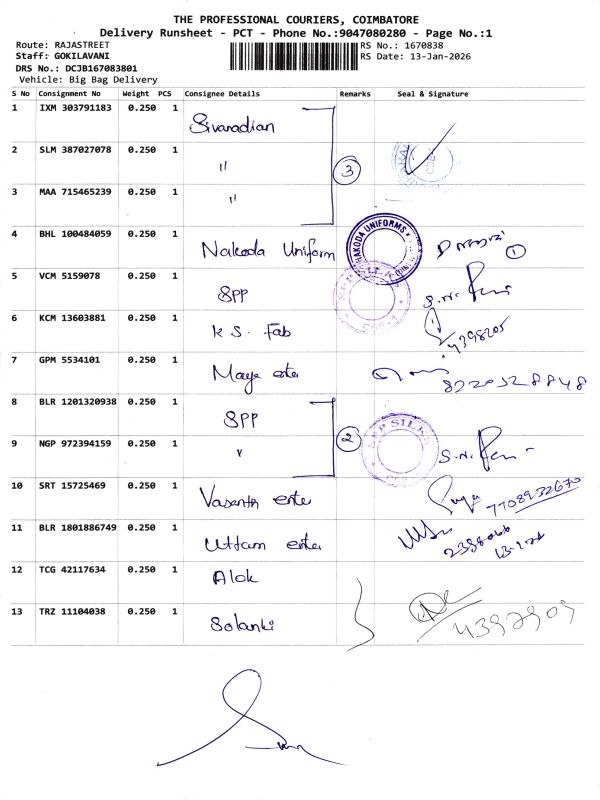 THE PROFESSIONAL COURIERS, COIMBATORE
Delivery Runsheet - PCT - Phone No.:9047080280 - Page No.:1
Route: RAJASTREET RS No.: 1670838
Staff: GOKILAVANI RS Date: 13-Jan-2026
DRS No.: DCJB167083801
Vehicle: Big Bag Delivery
S No Consignment No Weight PCS Consignee Details Remarks Seal & Signature
1 IXM 303791183 0.250 1 Sivaradian
2 SLM 387027078 0.250 1 " 3
3 MAA 715465239 0.250 1 "
4 BHL 100484059 0.250 1 Nakoda Uniform NAKODA UNIFORMS 1
5 VCM 5159078 0.250 1 SPP S.N.
6 KCM 13603881 0.250 1 K S. Fab 4398205
7 GPM 5534101 0.250 1 Maya enter 8220528848
8 BLR 1201320938 0.250 1 SPP 2 SPP SILKS
9 NGP 972394159 0.250 1 " S.N.
10 SRT 15725469 0.250 1 Vasanth enter 7708932670
11 BLR 1801886749 0.250 1 Uttam enter 2398066
12 TCG 42117634 0.250 1 Alok
13 TRZ 11104038 0.250 1 Solanki 4392909